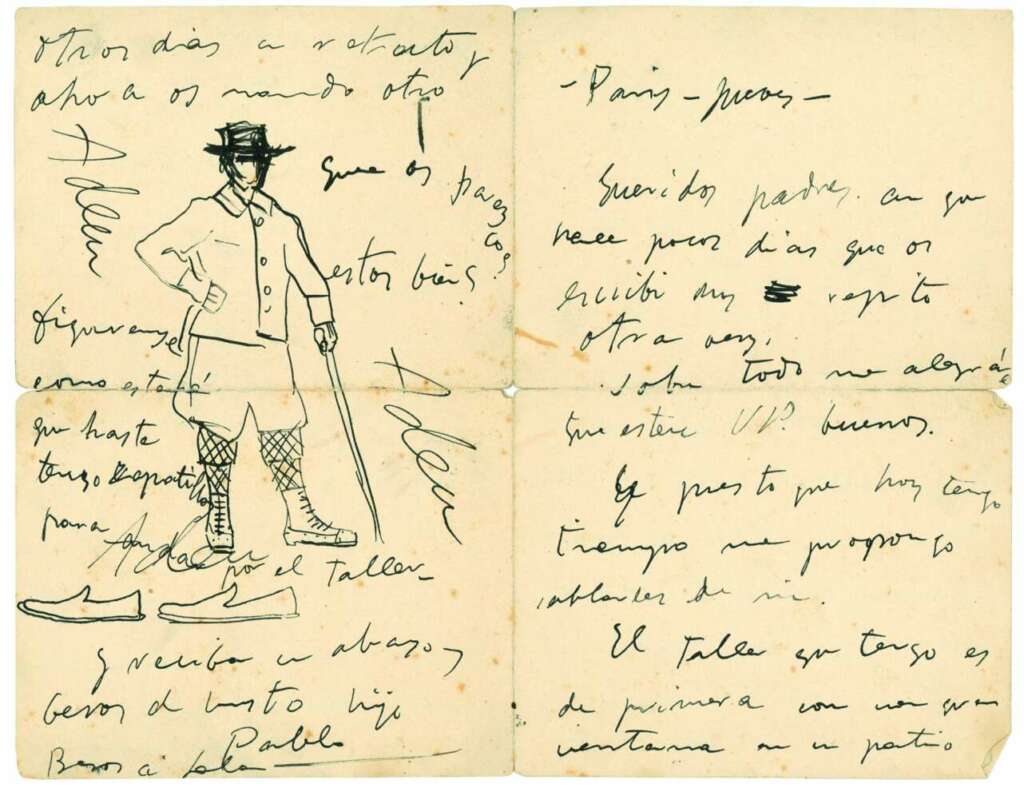 - Paris - jueves -
Queridos padres. aun que
hace pocos dias que os
escribi repito
otra vez.
sobre todo me alegrá
que esten Vs. buenos.
puesto que hoy tengo
tiempo me propongo
ablarles de mi.
El taller que tengo es
de primera con una gran
ventana en un patio
otros dias un retrato y
ahora os mando otro
que os parezcos
estoy bien?
Adeu
figurense
como estará
que hasta
tengo zapatillas
para andar
por el taller -
Adeu
y reciba un abrazo y
besos de vuestro hijo
Pablo
Besos a Lola